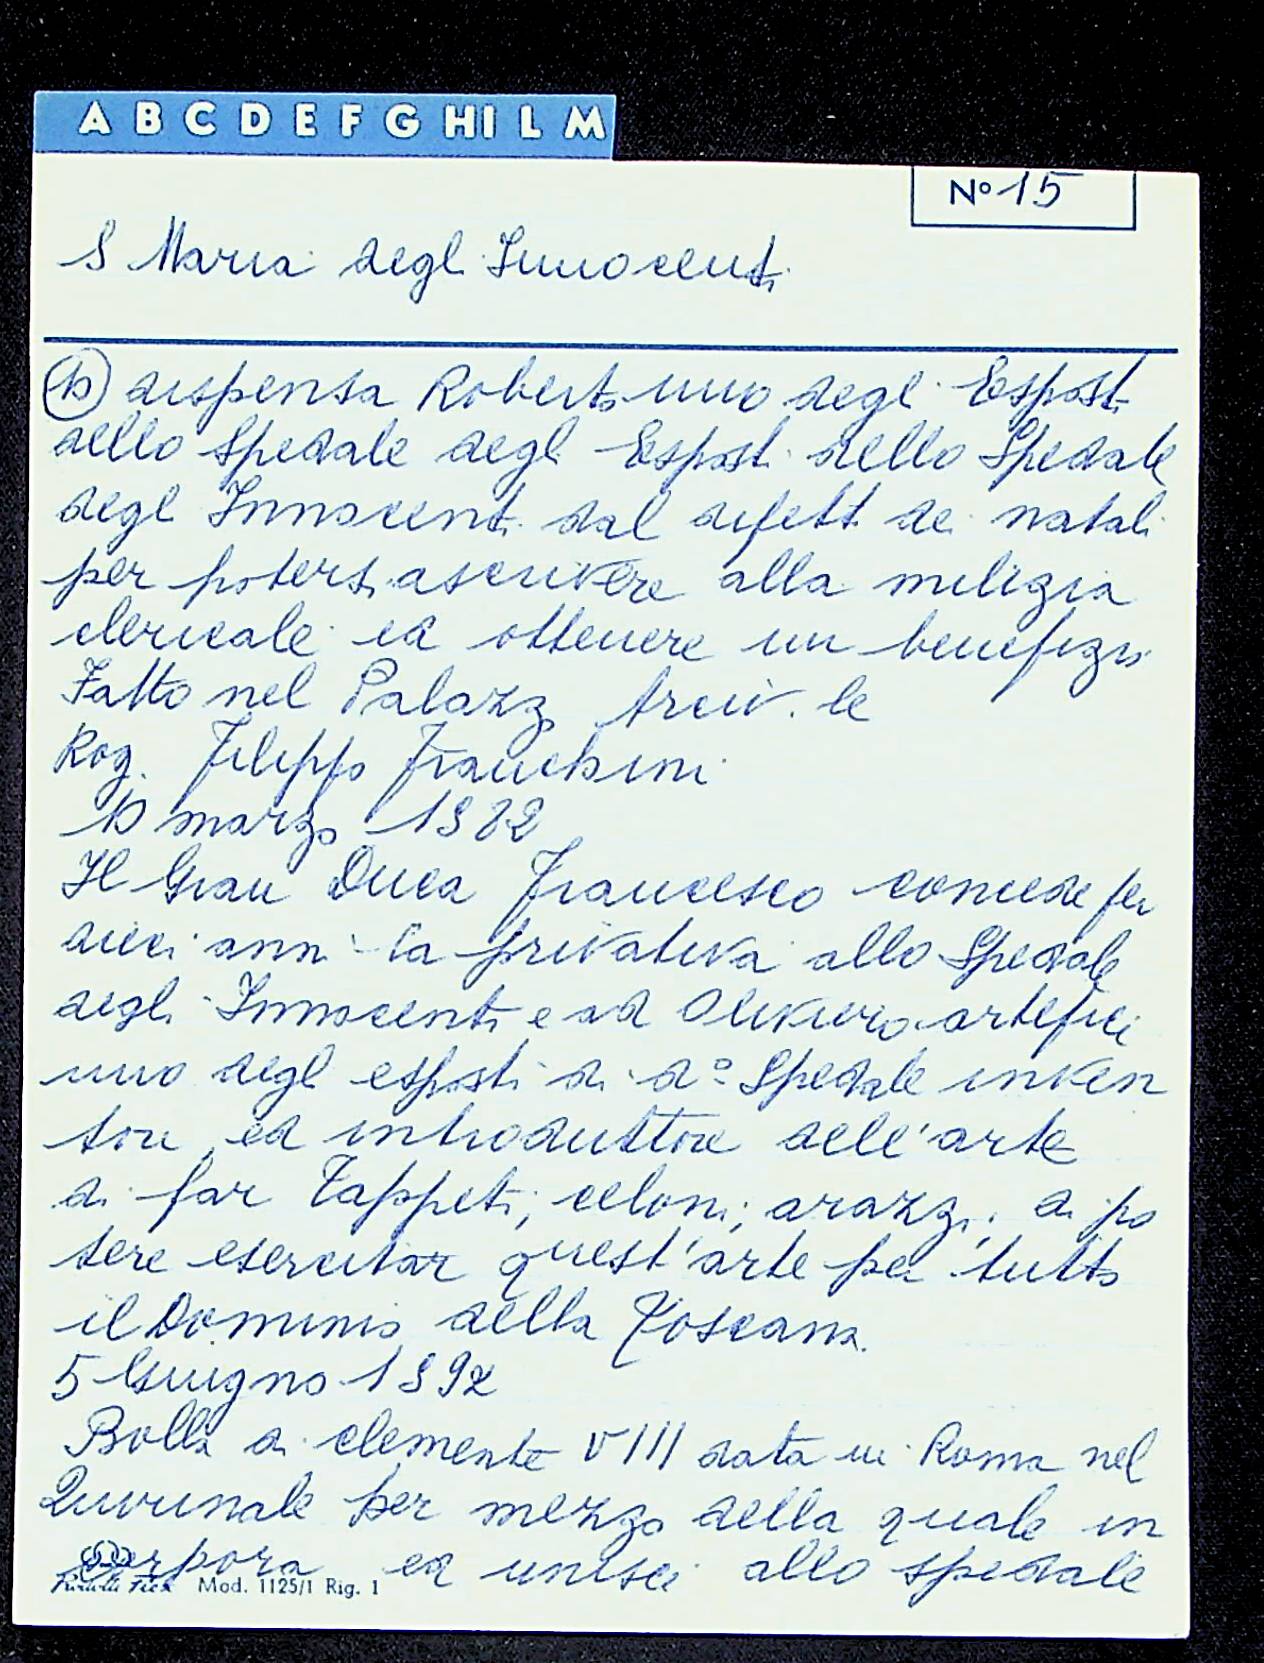 A B C D E F G HI L M
Nº 15
S Maria degli Innocenti
10 dispensa Roberto uno degli Esposti
dello Spedale degli Esposti dello Spedale
degli Innocenti dal difetto dei natali
per potersi ascrivere alla milizia
clericale ed ottenere un benefizio
Fatto nel Palazzo Arciv.le
Rog. Filippo Franchini
10 marzo 1582
Il Gran Duca Francesco concede per
dieci anni la privativa allo Spedale
degli Innocenti e ad Oliviero artefici
uno degli esposti di dº Spedale inven
tore ed introduttore dell'arte
di far Tappeti, celoni, arazzi; di po
tere esercitar quest'arte per tutto
il Dominio della Toscana.
5 Giugno 1592
Bolla di Clemente VIII data in Roma nel
Quirinale per mezzo della quale in
corpora ed unisce allo spedale
Mod. 1125/1 Rig. 1